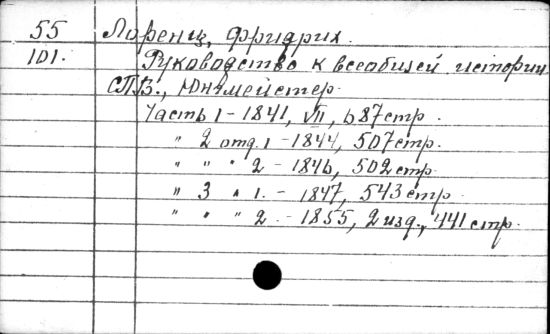 55 Лоренц, Фридрих.
101. Руководство к всеобщей истории
СПБ., Юнгмейстер.
Часть 1 - 1841, VII, 687 стр.
" 2 отд. 1 - 1844, 507 стр.
" " " 2 - 1846, 502 стр.
" 3 " 1. - 1847, 543 стр.
" " " 2 - 1855, 2 изд., 441 стр.